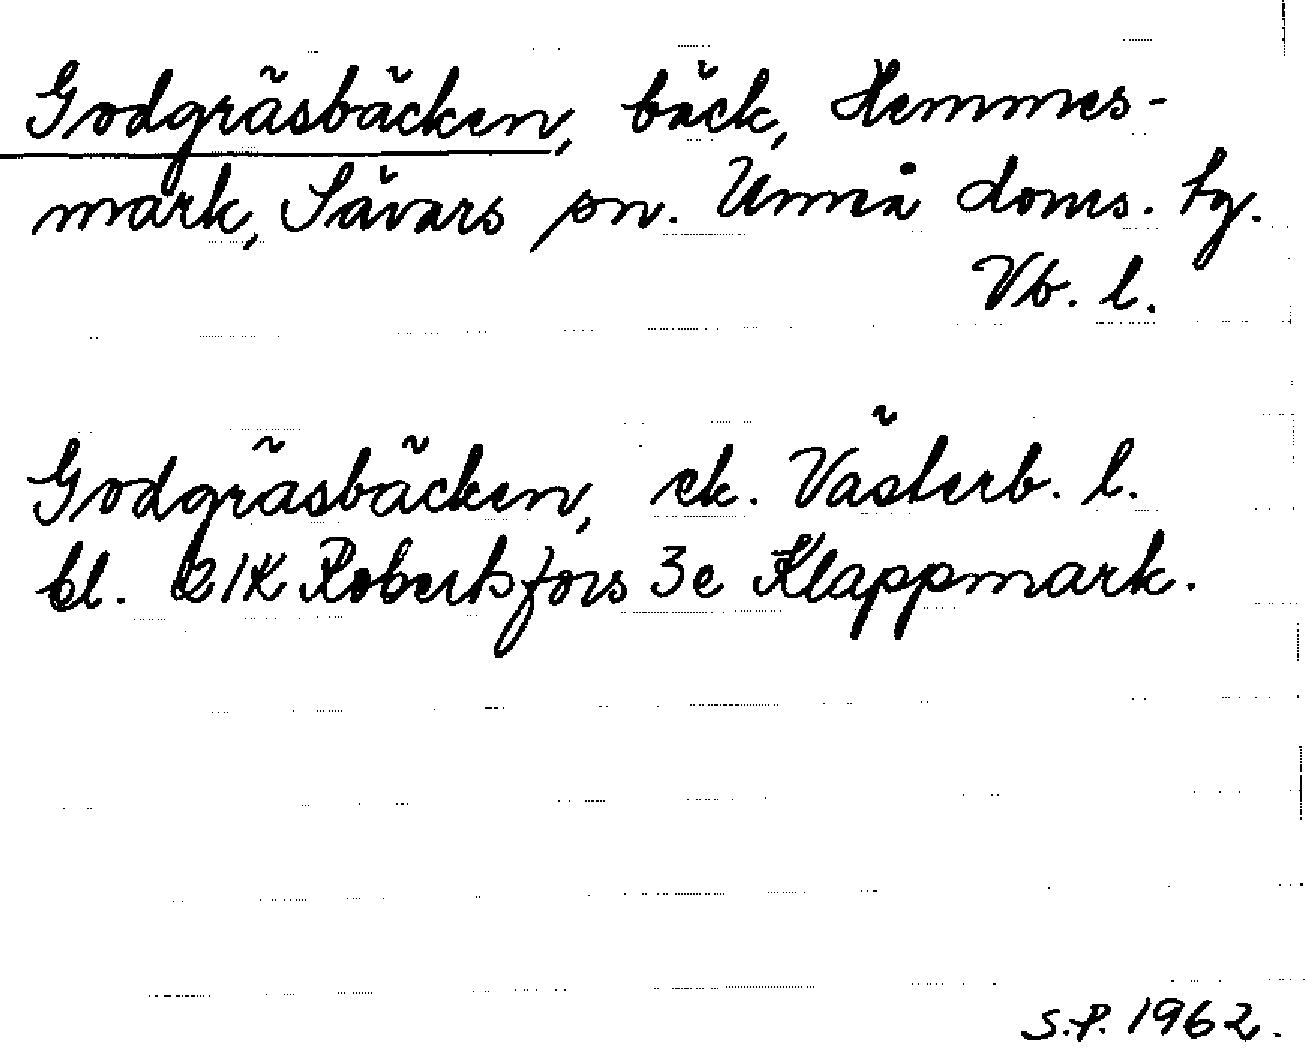 Godgräsbäcken, bäck, Hemmes-
mark, Sävars sn. Umeå doms. tg.
Vb. l.
Godgräsbäcken, ek. Västerb. l.
bl. 21K Robertsfors 3e Klappmark.
S.P. 1962.